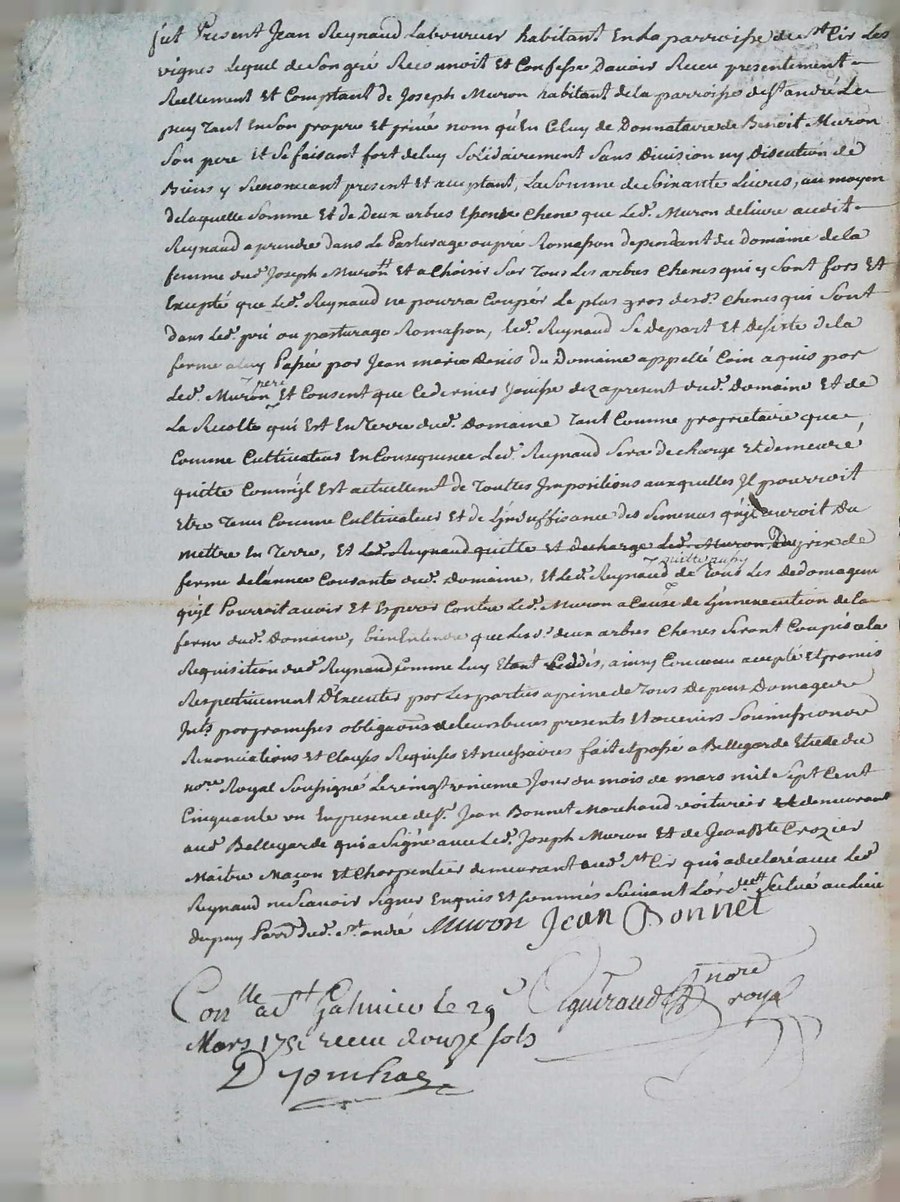 fut Present Jean Reynaud Laboureur habitant En La parroisse de St Cir Les
vignes Lequel de Son gré Reconnoit Et Confesse Davoir Receu presentement
Reellement Et Comptant de Joseph Muron habitant de la parroisse de St andré Le
puy Tant En Son propre Et privé nom qu'En Celuy de Donnataire de Benoit Muron
Son pere Et Se faisant fort de luy Solidairement Sans Division ny Discution de
Biens y Renoncant present Et acceptant, La Somme de Soixante Livres, au moyen
de laquelle Somme Et de Deux arbres Chene que Led. Muron delivre audit
Reynaud a prendre dans Le Pasturage ou pré Romasson dependant du domaine de la
femme dud. Joseph Muron Et a Choisir Sur Tous Les arbres Chenes qui y Sont fors Et
Excepté que Led. Reynaud ne pourra Coupér Le plus gros desd. Chenes qui Sont
dans Led. pré ou pasturage Romasson, Led. Reynaud Se Depart Et Desiste de la
ferme a luy Passée par Jean marie Denis du Domaine appellé Coin aquis par
Led. Muron pere Et Consent que Ce dernier Jouisse dez a present dud. Domaine Et de
La Recolte qui Est En Terre dud. Domaine Tant Comme proprietaire que
Comme Cultivateur En Consequence Led. Reynaud Sera decharge Et demeure
quitte Comm'il Est actuellemt de Touttes Impositions auxquelles Il pourroit
Etre Tenu Comme Cultivateur Et de L'insuffisance des Semences qu'il auroit Du
mettre En Terre, Et Led. Reynaud quitte et decharge Led. Muron Du prix de
ferme de l'année Courante dud. Domaine, Et Led. Reynaud quitte aussy de Tous Les Dedomagemt
qu'il Pourroit avoir Et Esperer Contre Led. Muron a Cause de L'innexecution de la
ferme dud. Domaine, bien Entendu que Lesd. deux arbres Chenes Seront Coupés a la
Requisition dud. Reynaud, Comme Luy Etant Cedés, ainsy Convenu accepté Et promis
Respectivement D'Executer par Les parties a peine de Tous Depens Domages
Ints par promesses obligaons de leurs biens presents Et avenirs Soumissions
Renonciations Et Clauses Requises Et necessaires fait Et passé a Bellegarde Etude du
nore Royal Soussigné Le vingt Jour du mois de mars mil Sept Cent
Cinquante un En presence de Sr. Jean Bonnet Marchand voiturier demeurant
aud. Bellegarde qui a Signé avec Led. Joseph Muron Et de Jean Bte Crozier
Maitre Maçon Et Charpentier demeurant aud. St Cir qui a declaré avec Led.
Reynaud ne Scavoir Signer Enquis Et Sommés Suivant L'ordce Situé au Lieu
du puy Parr. dud. St. andré Muron Jean Bonnet
nore
royal
Conlle a St Galmier Le 29e
Mars 1751 receu douze sols